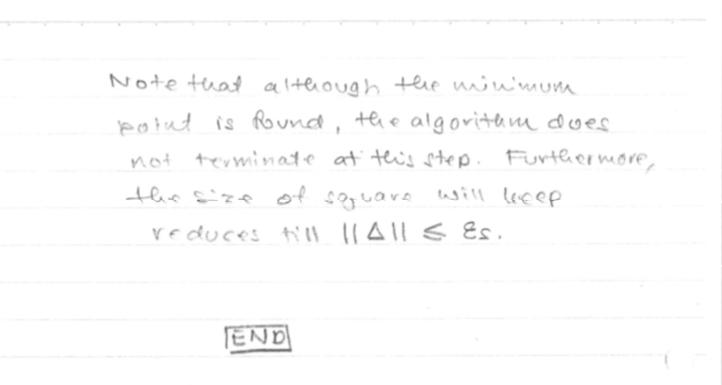 Note that although the minimum
point is found, the algorithm does
not terminate at this step. Furthermore,
the size of square will keep
reduces till ||Δ|| ≤ εs.
END